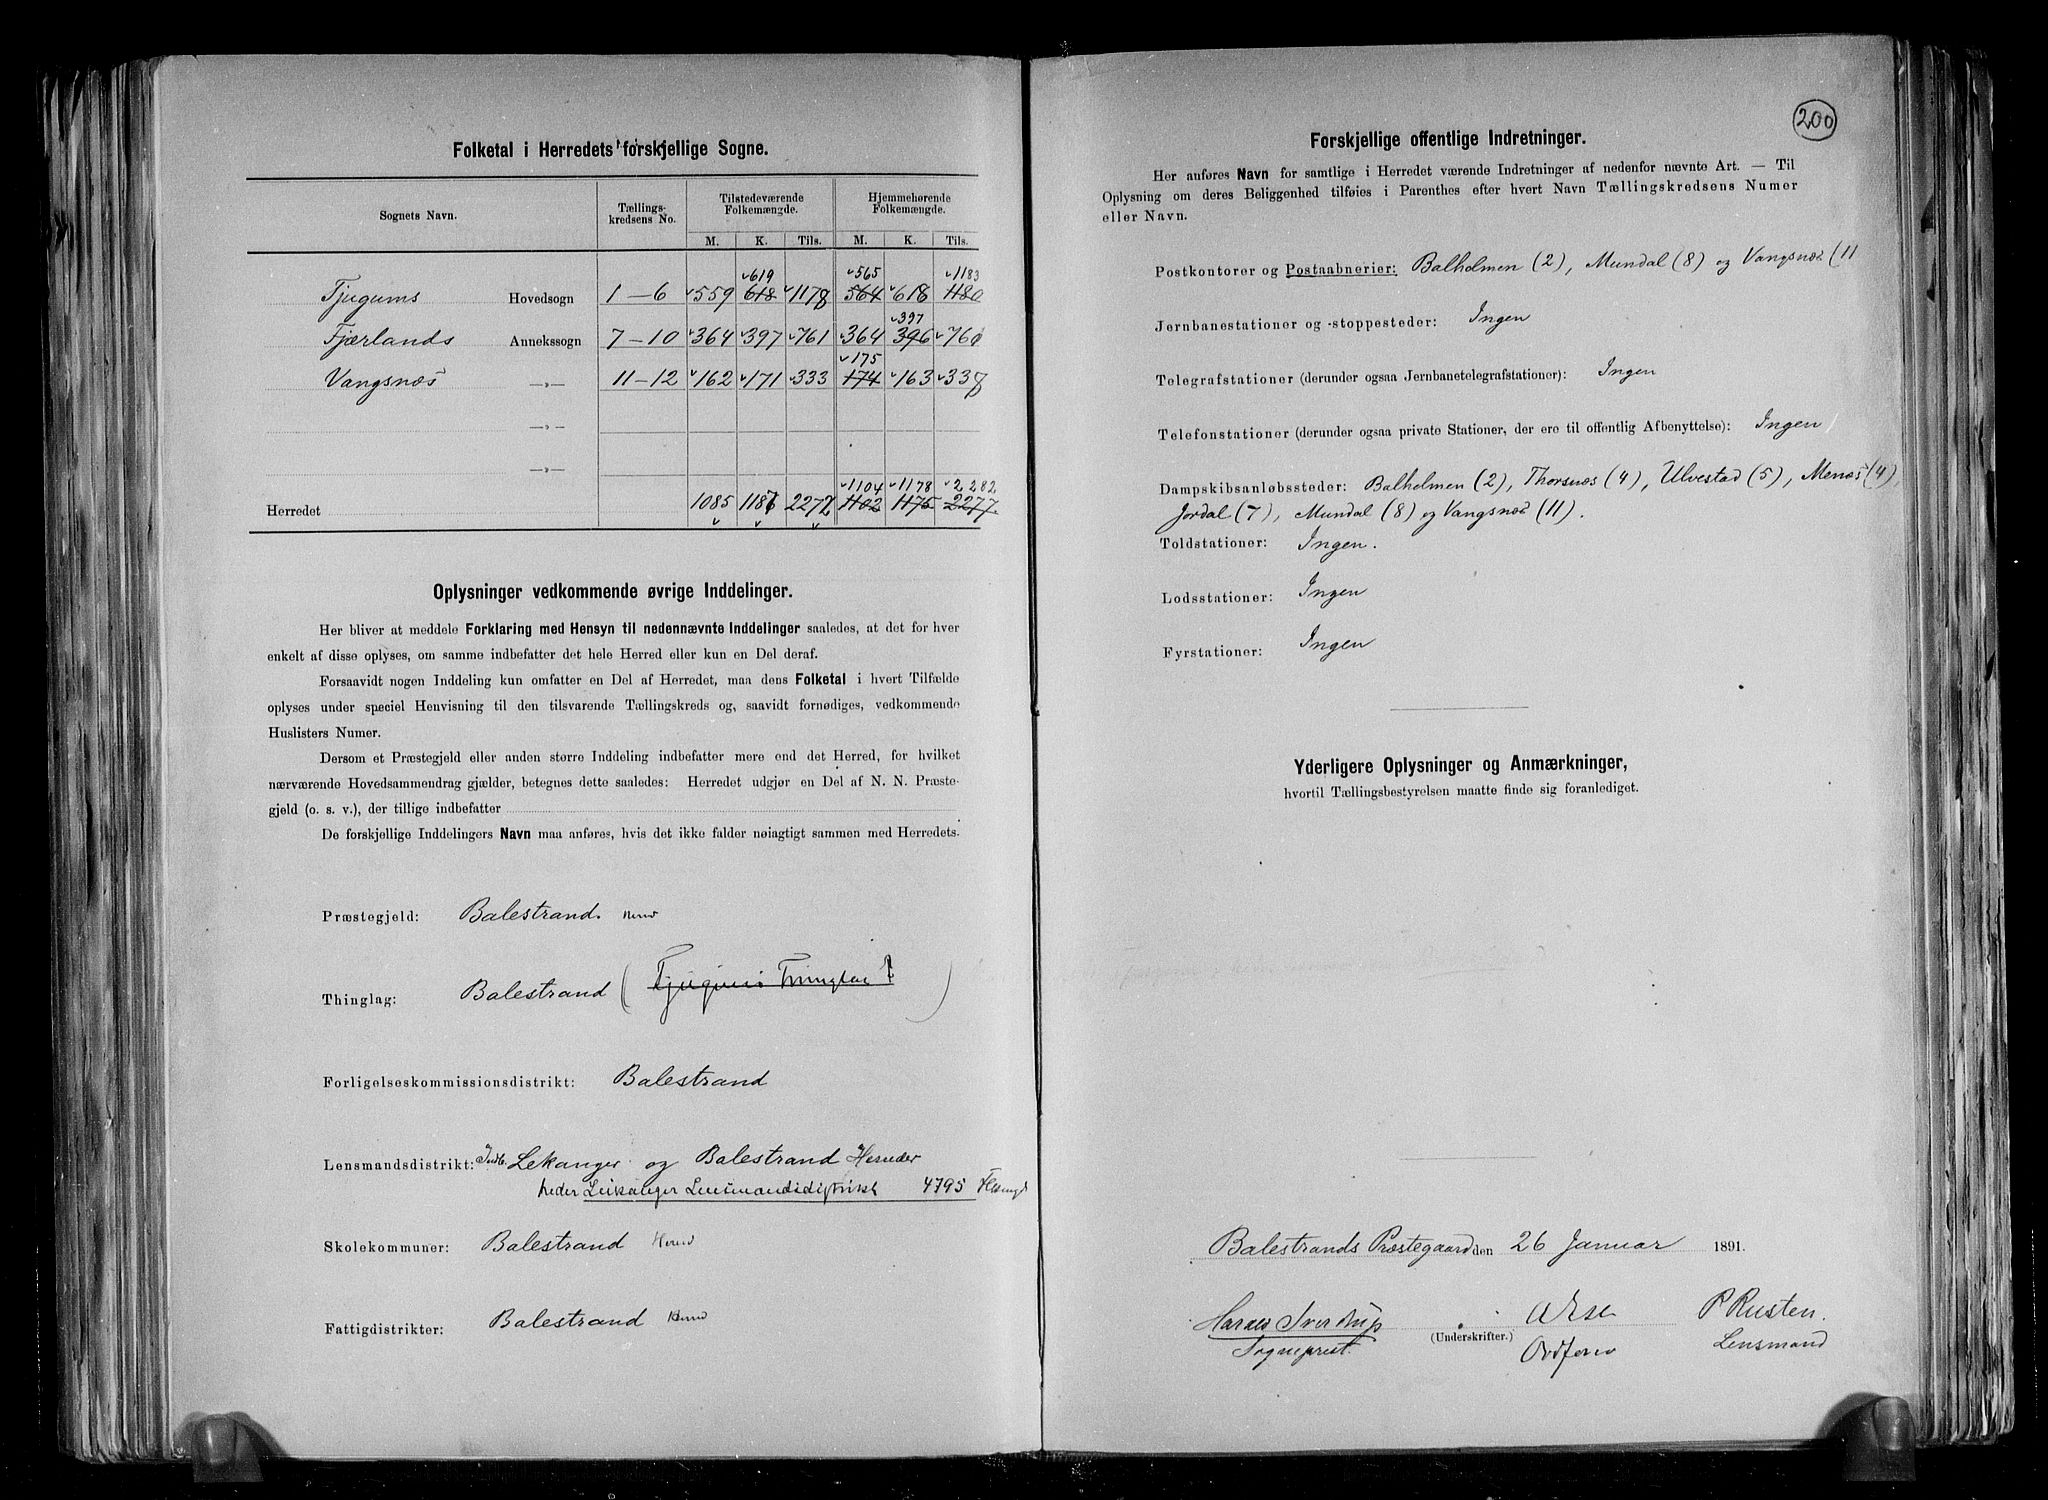 Folketal i Herredets forskjellige Sogne.
Sognets Navn. Tællings-kredsens No. Tilstedeværende Folkemængde. Hjemmehørende Folkemængde.
M. K. Tils. M. K. Tils.
619 565 1183
Tjugums Hovedsogn 1-6 559 618 1178 564 618 1180
397
Fjærlands Annekssogn 7-10 364 397 761 364 396 761
175
Vangsnæs -„- 11-12 162 171 333 174 163 338
-„-
-„-
1104 1178 2282
Herredet 1085 1187 2272 1102 1175 2277
Oplysninger vedkommende øvrige Inddelinger.
Her bliver at meddele Forklaring med Hensyn til nedennævnte Inddelinger saaledes, at det for hver
enkelt af disse oplyses, om samme indbefatter det hele Herred eller kun en Del deraf.
Forsaavidt nogen Inddeling kun omfatter en Del af Herredet, maa dens Folketal i hvert Tilfælde
oplyses under speciel Henvisning til den tilsvarende Tællingskreds og, saavidt fornødiges, vedkommende
Huslisters Numer.
Dersom et Præstegjeld eller anden større Inddeling indbefatter mere end det Herred, for hvilket
nærværende Hovedsammendrag gjælder, betegnes dette saaledes: Herredet udgjør en Del af N. N. Præste-
gjeld (o. s. v.), der tillige indbefatter
De forskjellige Inddelingers Navn maa anføres, hvis det ikke falder nøiagtigt sammen med Herredets.
Præstegjeld: Balestrand. Herred
Thinglag: Balestrand (Tjugums Thinglag?)
Forligelseskommissionsdistrikt: Balestrand
Lensmandsdistrikt: Indb. Lekanger og Balestrand Herreder
heder Leikanger Lensmandsdistrikt 4795
Skolekommuner: Balestrand Herred
Fattigdistrikter: Balestrand Herred
200
Forskjellige offentlige Indretninger.
Her anføres Navn for samtlige i Herredet værende Indretninger af nedenfor nævnte Art. — Til
Oplysning om deres Beliggenhed tilføies i Parenthes efter hvert Navn Tællingskredsens Numer
eller Navn.
Postkontorer og Postaabnerier: Balholmen (2), Mundal (8) og Vangsnæs (11
Jernbanestationer og -stoppesteder: Ingen
Telegrafstationer (derunder ogsaa Jernbanetelegrafstationer): Ingen
Telefonstationer (derunder ogsaa private Stationer, der ere til offentlig Afbenyttelse): Ingen
Dampskibsanløbssteder: Balholmen (2), Thorsnæs (4), Ulvestad (5), Menæs (4),
Jordal (7), Mundal (8) og Vangsnæs (11).
Toldstationer: Ingen.
Lodsstationer: Ingen
Fyrstationer: Ingen
Yderligere Oplysninger og Anmærkninger,
hvortil Tællingsbestyrelsen maatte finde sig foranlediget.
Balestrands Præstegaard den 26 Januar 1891.
Harald Sverdrup A Ese P Rusten.
(Underskrifter.)
Sogneprest. Ordfører Lensmand